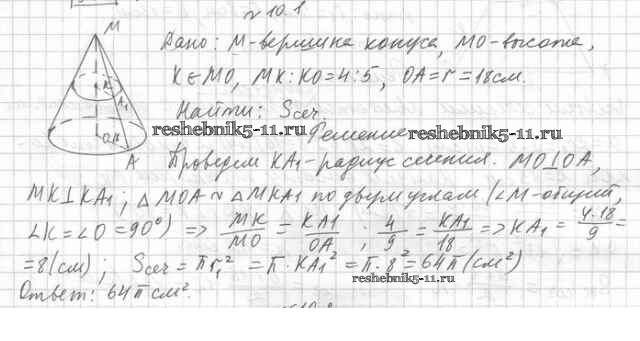 № 10.1
M
Дано: M-вершина конуса, MO-высота,
K∈MO, MK:KO=4:5, OA=r=18см.
Найти: Sсеч.
reshebnik5-11.ru Решение reshebnik5-11.ru
A
Проведем KA₁-радиус сечения. MO⊥OA,
MK⊥KA₁; △MOA ~ △MKA₁ по двум углам (∠M-общий,
∠K=∠O=90°) => MK/MO = KA1/OA; 4/9 = KA₁/18 => KA₁ = 4·18/9 =
=8(см); Sсеч = πr₁² = π·KA₁² = π·8² = 64π(см²)
reshebnik5-11.ru
Ответ: 64π см².